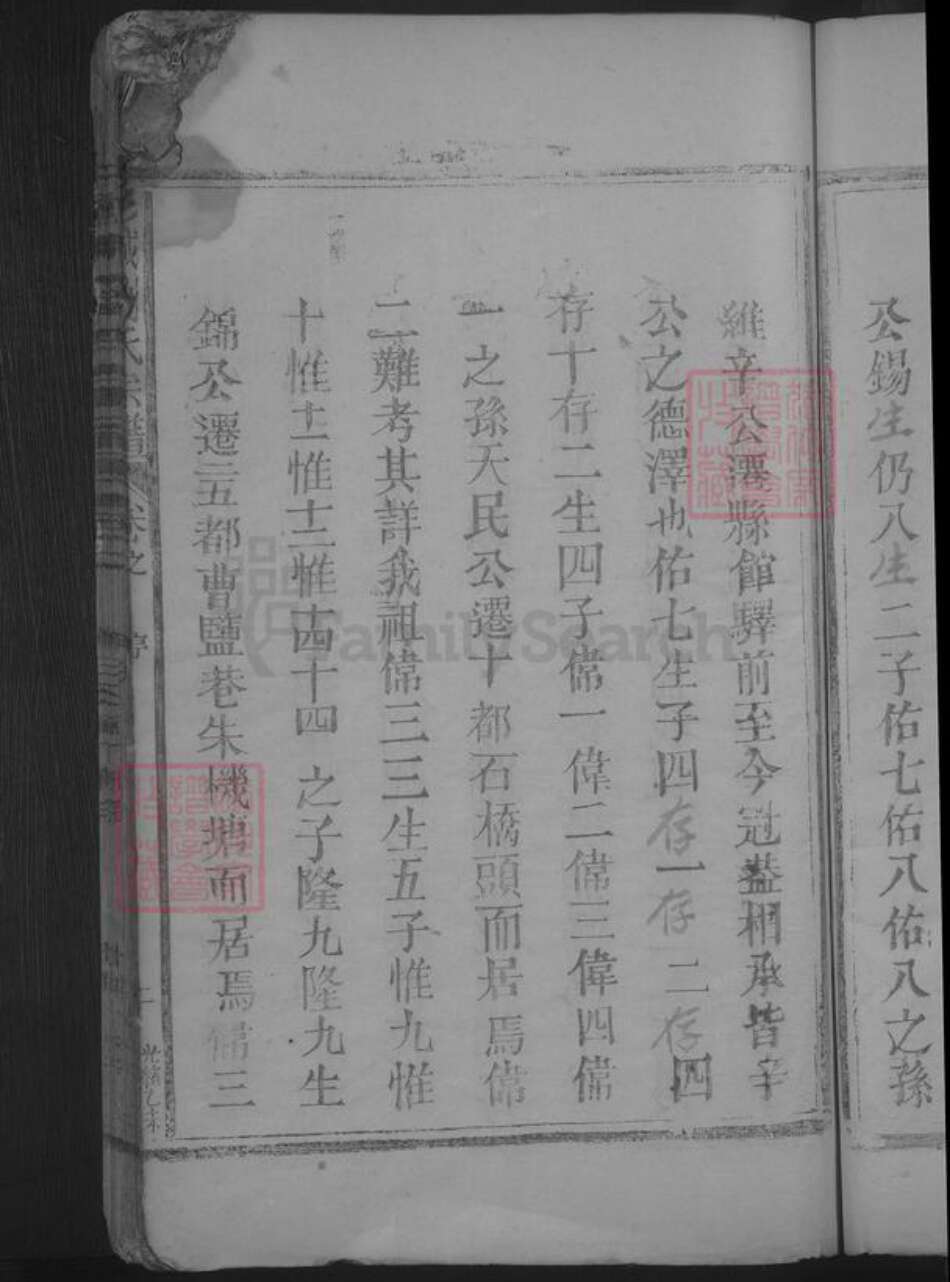 公錫生仍八生二子佑七佑八佑八之孫
維辛公遷縣館驛前至今冠蓋相承皆辛
公之德澤也佑七生子四存一存二存四
存十存二生四子偉一偉二偉三偉四偉
一之孫天民公遷十都石橋頭而居焉偉
二難考其詳我祖偉三三生五子惟九惟
十惟十一惟十二惟十四十四之子隆九隆九生
錦公遷三五都曹鹽巷朱機塘而居焉偉三
氏宗譜 卷之
光緒乙未
FamilySearch